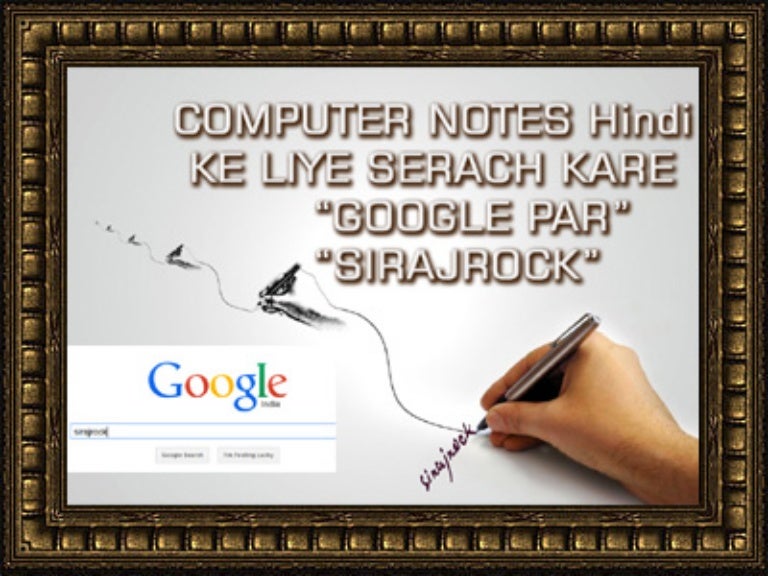 COMPUTER NOTES Hindi
KE LIYE SERACH KARE
“GOOGLE PAR”
“SIRAJROCK”
Google
India
sirajrock
Google Search I'm Feeling Lucky
sirajrock